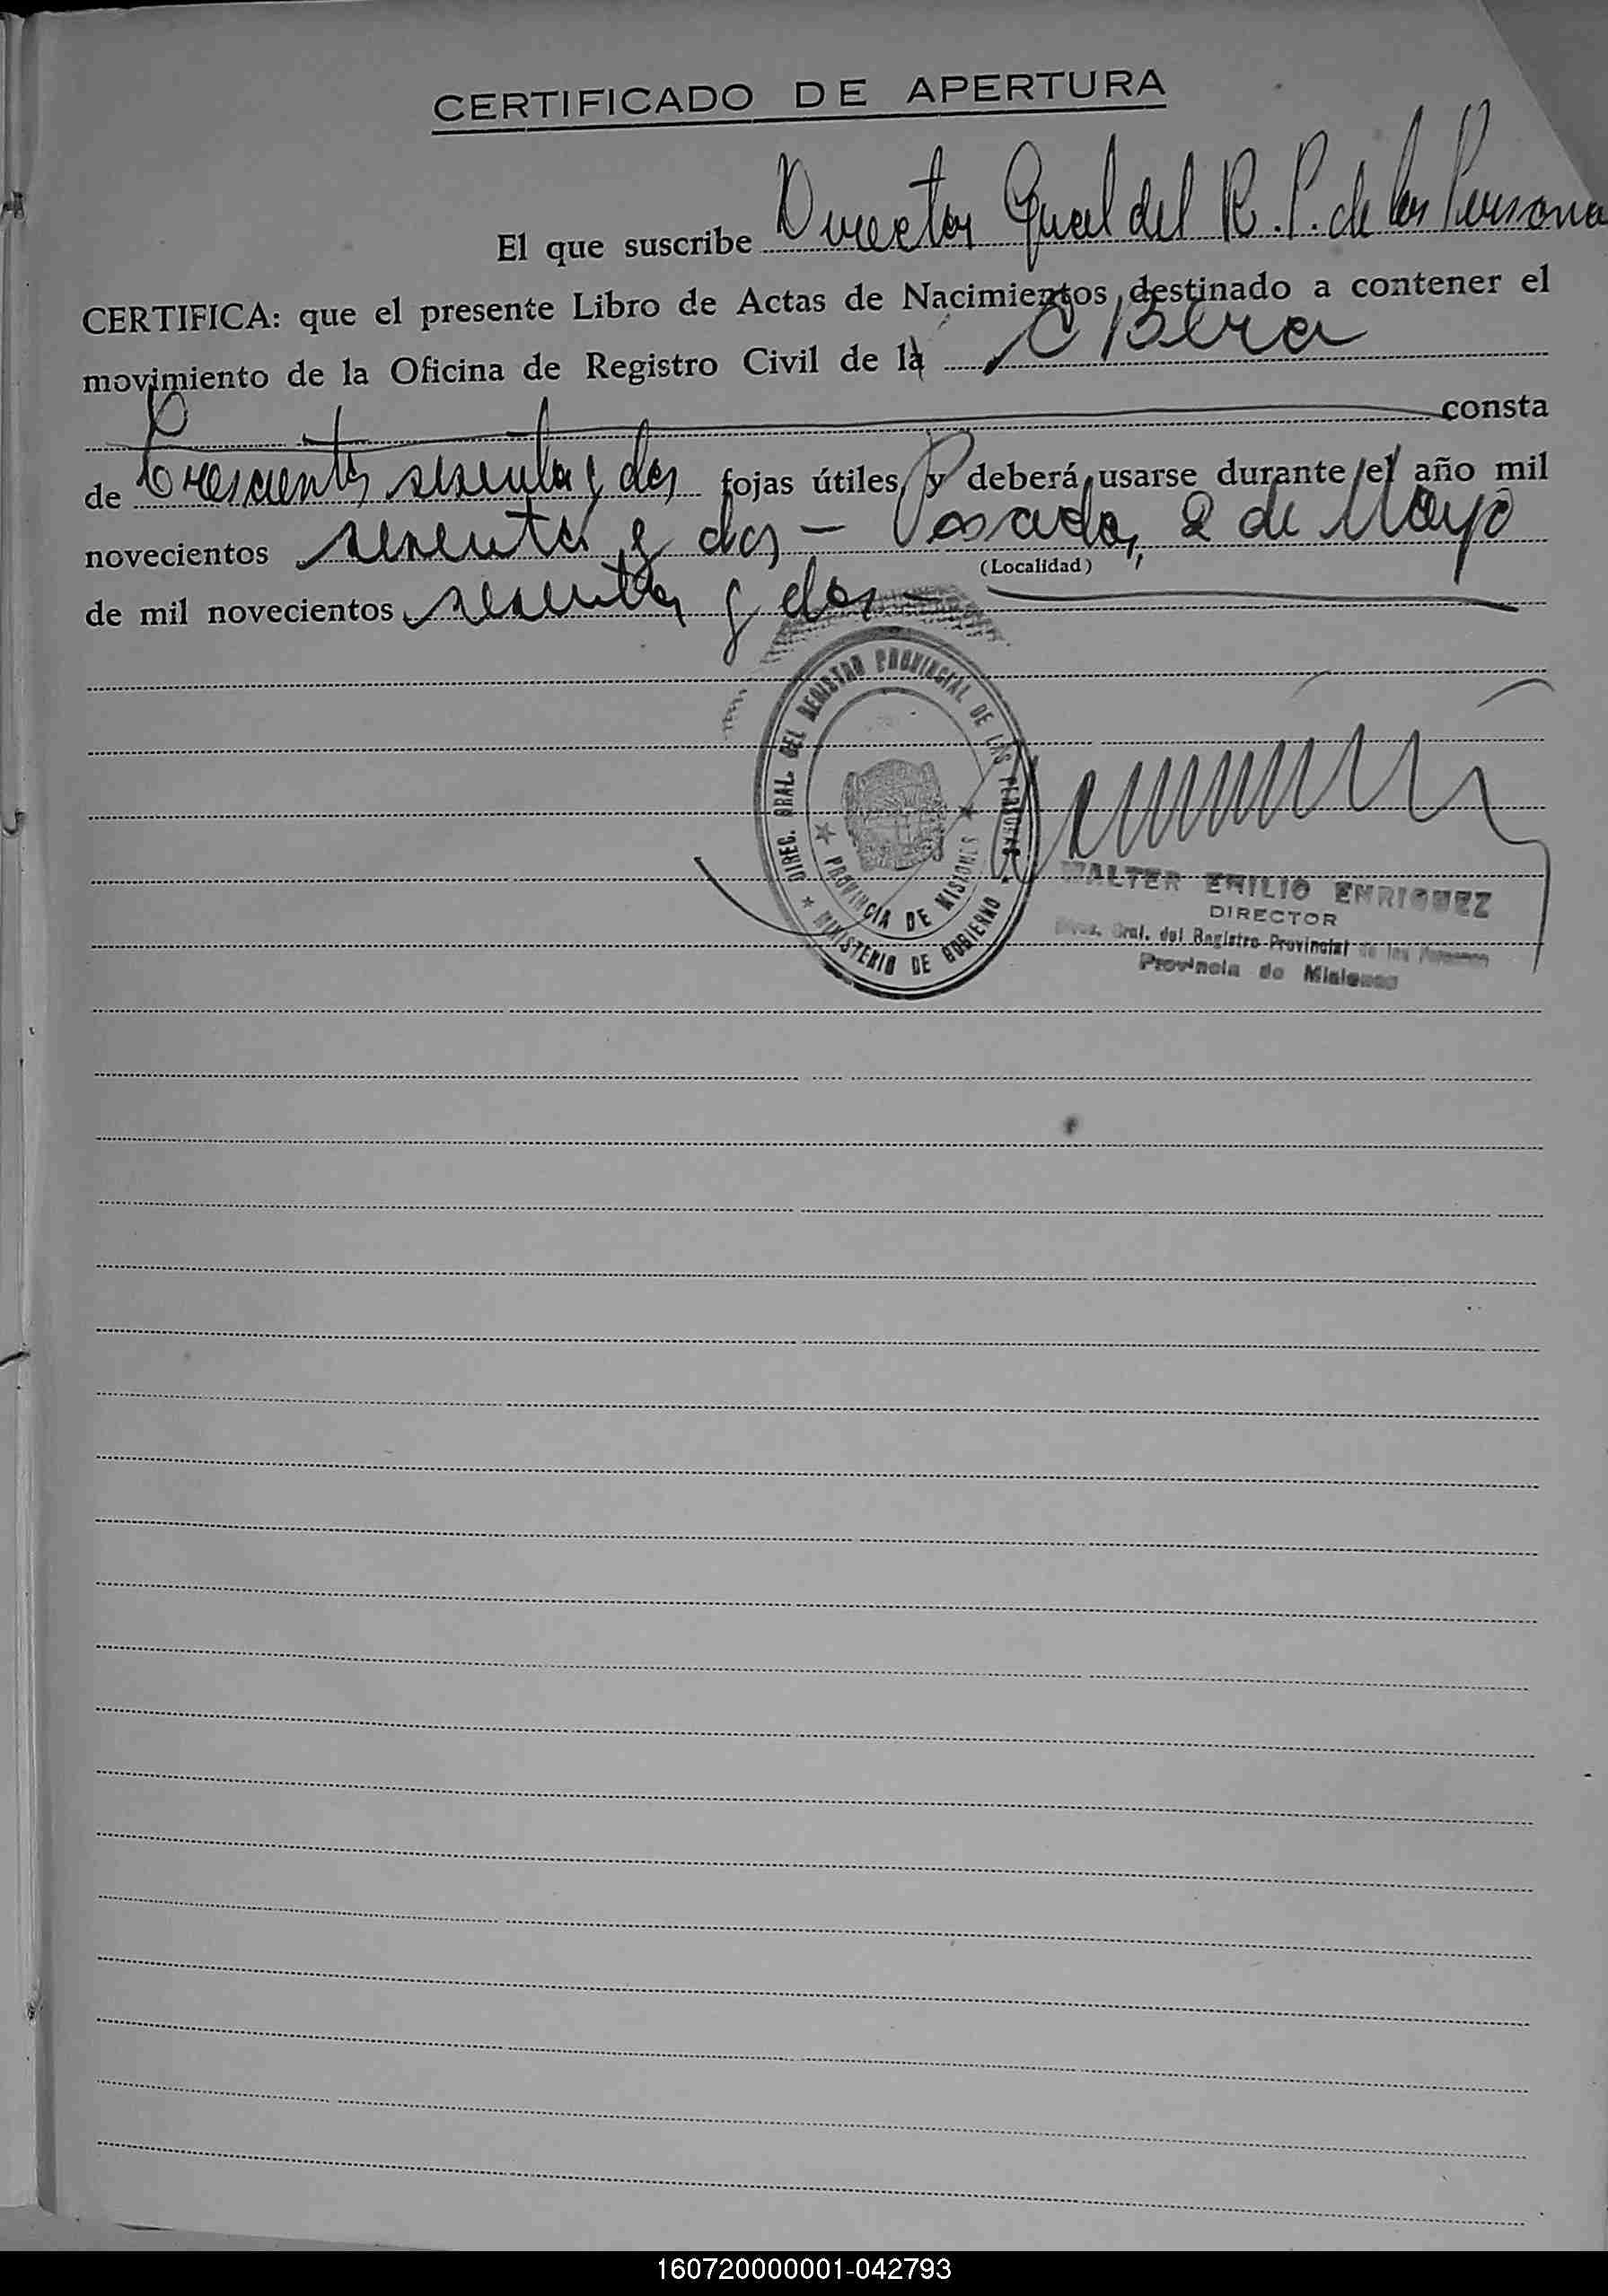 CERTIFICADO DE APERTURA
El que suscribe Director Gral del R. P. de las Persona
CERTIFICA: que el presente Libro de Actas de Nacimientos destinado a contener el
movimiento de la Oficina de Registro Civil de la Obera
consta
de trescientos sesenta y dos fojas útiles, y deberá usarse durante el año mil
novecientos sesenta y dos - Posadas, 2 de Mayo
(Localidad)
de mil novecientos sesenta y dos -
DIREC. GRAL. DEL REGISTRO PROVINCIAL DE LAS PERSONAS
PROVINCIA DE MISIONES
MINISTERIO DE GOBIERNO
WALTER EMILIO ENRIQUEZ
DIRECTOR
Gral. del Registro Provincial de las Personas
Provincia de Misiones
160720000001-042793